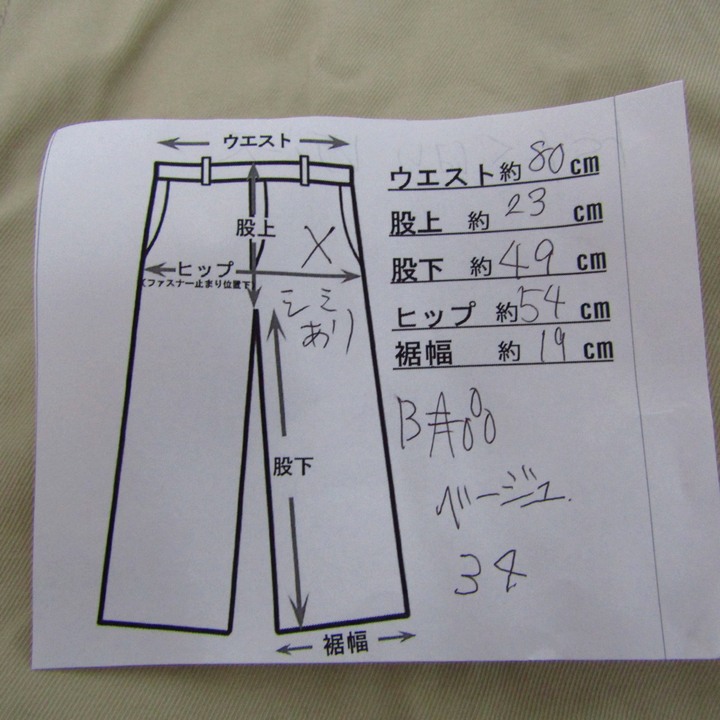 ウエスト
股上
ヒップ
(ファスナー止まり位置下)
X
シミ
あり
股下
裾幅
ウエスト約 80 cm
股上 約 23 cm
股下 約 49 cm
ヒップ 約 54 cm
裾幅 約 19 cm
B品
ベージュ
34